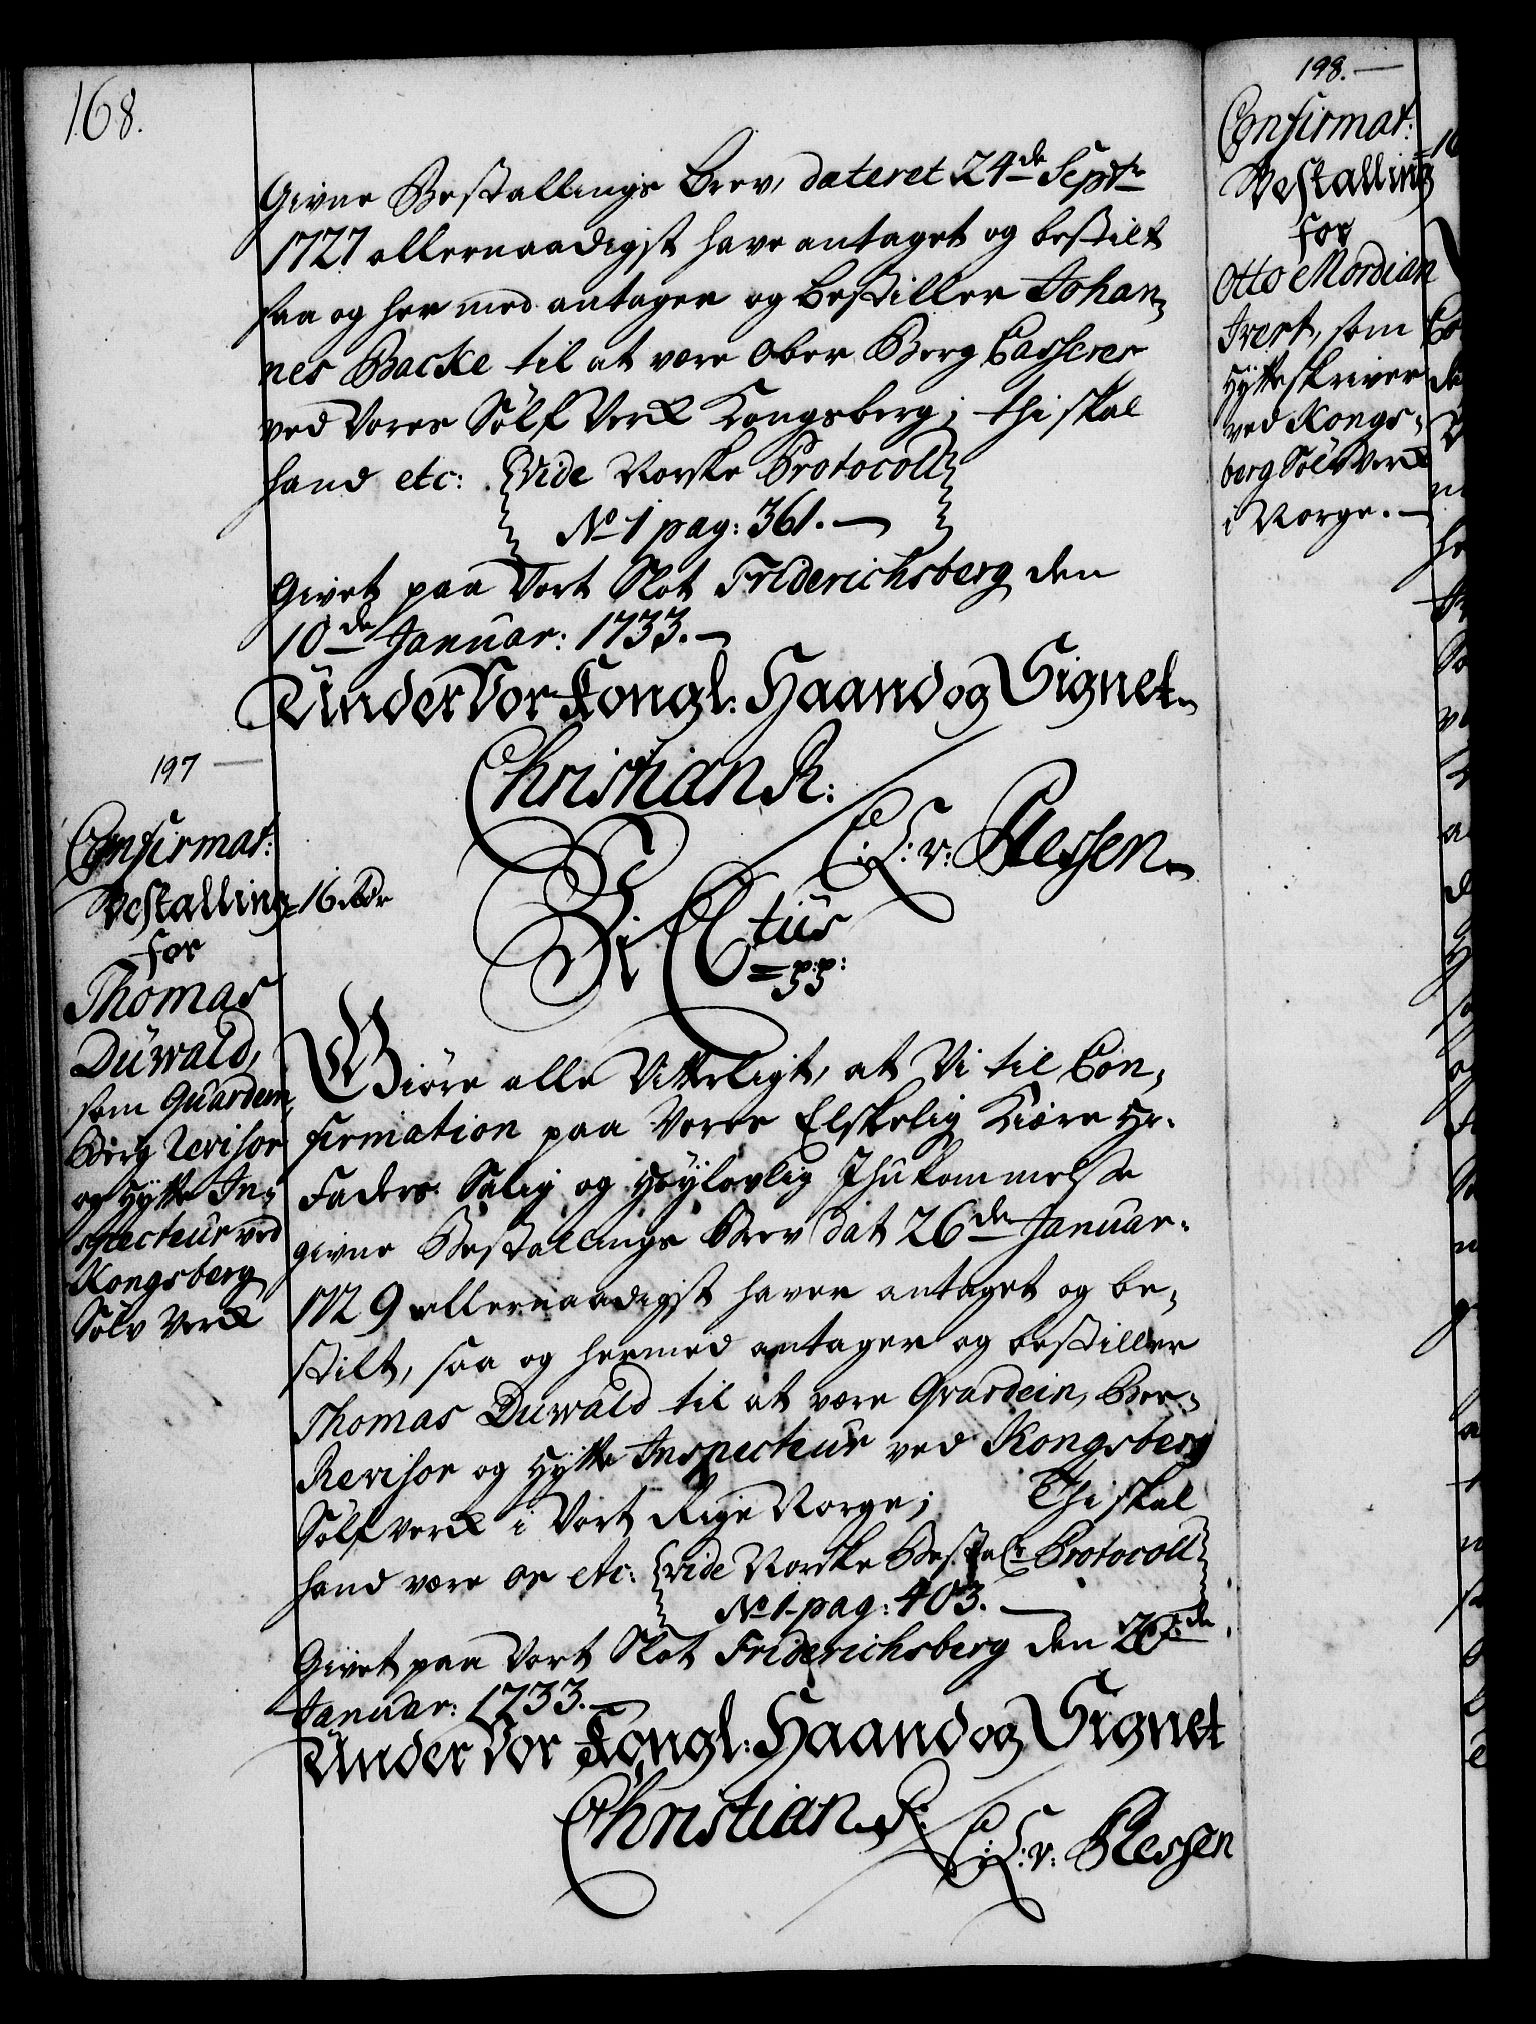 168.
Givne Bestallings Brev, dateret 24de Septr
1727 allernaadigst have antaget og bestilt
saa og her med antager og bestiller Johan¬
nes Backe til at være Ober Berg Casserer
ved Vores Sölf Verk Kongsberg; thi skal
hand etc: vide Norske Protocoll
No 1 pag: 361.
Givet paa Vort Slot Friderichsberg den
10de Januar: 1733.
Under Vor Kongl: Haand og Signet
Christian R:
C: A: v: Plessen
197
Confirmat:
Bestalling
for
Thomas
Duwald,
som Guardein,
Berg Revisor
og Hytte In¬
specteur ved
Kongsberg
Sölv Verk
16 Rdr
Vi C 6tus
pp:
Giöre alle Vitterligt, at Vi til Con¬
firmation paa Vores Elskelig Kiære Hr.
Faders Salig og Höylovlig Ihukommelse
givne Bestallings Brev dat 26de Januar.
1729 allernaadigst haver antaget og be¬
stilt, saa og hermed antager og bestiller
Thomas Duwald til at være Guardein, Ber¬
Revisor og Hytte Inspecteur ved Kongsberg
Sölfverk i Vort Rige Norge; Thi skal
hand være os etc: vide Norske Protocoll
No 1 pag: 403.
Givet paa Vort Slot Friderichsberg den
Januar: 1733.
Under Vor Kongl: Haand og Signet
Christian R:
C: A: v: Plessen
198.
Confirmat:
Bestalling
for
Otto Mordian
som
Hytteskriver
ved Kongs¬
berg Sölv Verk
i Norge.